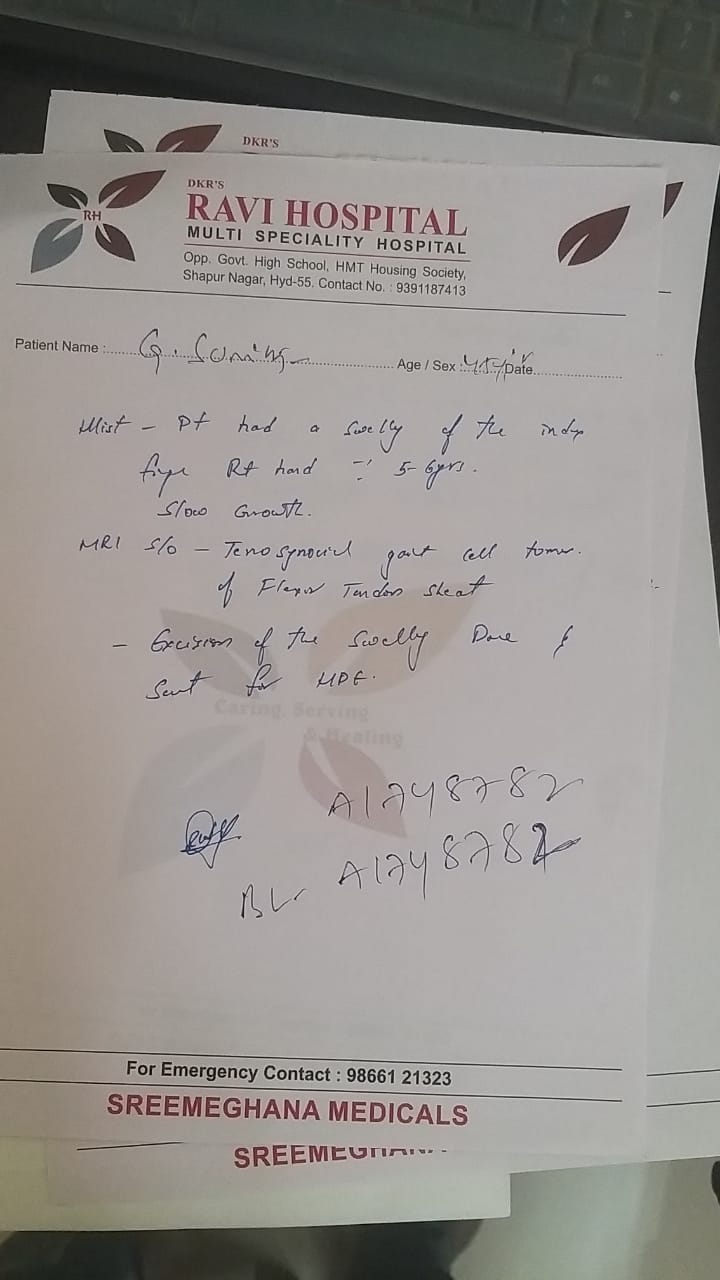 DKR'S
DKR'S
RH
RAVI HOSPITAL
MULTI SPECIALITY HOSPITAL
Opp. Govt. High School, HMT Housing Society,
Shapur Nagar, Hyd-55. Contact No. : 9391187413
Patient Name : G. Age / Sex : 45y Date
Hist - Pt had a swelly of the index
finge Rt hand 5-6yrs.
Slow Growth.
MRI S/O - Tenosynovial gaint cell tomor.
of Flexor Tendon Sheat
- Excision of the swelly Done &
Sent for HPE.
Caring, Serving
& Healing
A1748782
A1748782
For Emergency Contact : 98661 21323
SREEMEGHANA MEDICALS